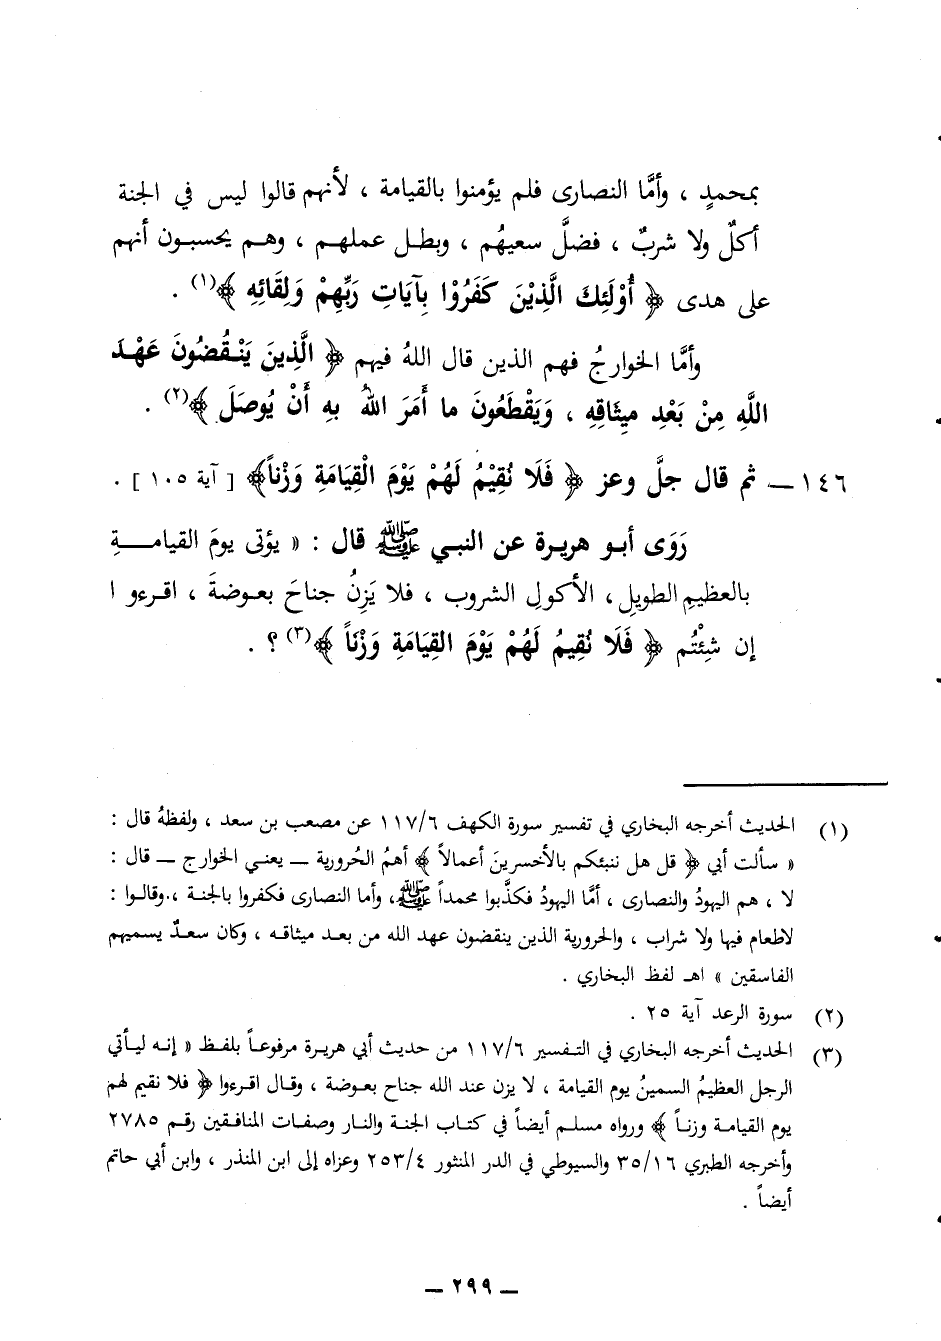 بمحمدٍ ، وأمَّا النصارى فلم يؤمنوا بالقيامة ، لأنهم قالوا ليس في الجنة
أكلٌ ولا شربٌ ، فضلَّ سعيهُم ، وبطل عملهم ، وهم يحسبون أنهم
على هدى ﴿ أُوْلَئِكَ الَّذِيْنَ كَفَرُوْا بِآيَاتِ رَبِّهِمْ وَلِقَائِهِ ﴾(١) .
وأمَّا الخوارجُ فهم الذين قال اللهُ فيهم ﴿ الَّذِينَ يَنْقُضُونَ عَهْدَ
اللَّهِ مِنْ بَعْدِ مِيثَاقِهِ ، وَيَقْطَعُونَ ما أَمَرَ اللهُ بِهِ أَنْ يُوصَلَ ﴾(٢) .
١٤٦ ــ ثم قال جلَّ وعز ﴿ فَلَا نُقِيْمُ لَهُمْ يَوْمَ الْقِيَامَةِ وَزْناً﴾ [ آية ١٠٥ ] .
رَوَى أبو هريرة عن النبي ﷺ قال : « يؤتى يومَ القيامـــةِ
بالعظيمِ الطويلِ ، الأكولِ الشروب ، فلا يَزِنُ جناحَ بعوضةَ ، اقرءو ا
إن شِئْتُم ﴿ فَلَا نُقِيمُ لَهُمْ يَوْمَ القِيَامَةِ وَزْنَاً ﴾(٣) ؟ .
(١) الحديث أخرجه البخاري في تفسير سورة الكهف ١١٧/٦ عن مصعب بن سعد ، ولفظهُ قال :
« سألت أبي ﴿ قل هل ننبئكم بالأخسرينَ أعمالاً ﴾ أهمُ الحُرورية ــ يعني الخوارج ــ قال :
لا ، هم اليهودُ والنصارى ، أمَّا اليهودُ فكذَّبوا محمداً ﷺ، وأما النصارى فكفروا بالجنة ،.وقالوا :
لاطعام فيها ولا شراب ، والحرورية الذين ينقضون عهد الله من بعد ميثاقه ، وكان سعدٌ يسميهم
الفاسقين » اهـ لفظ البخاري .
(٢) سورة الرعد آية ٢٥ .
(٣) الحديث أخرجه البخاري في التفسير ١١٧/٦ من حديث أبي هريرة مرفوعاً بلفظ « إنه ليأتي
الرجل العظيمُ السمينُ يوم القيامة ، لا يزن عند الله جناح بعوضة ، وقال اقرءوا ﴿ فلا نقيم لهم
يوم القيامة وزناً ﴾ ورواه مسلم أيضاً في كتاب الجنة والنار وصفات المنافقين رقم ٢٧٨٥
وأخرجه الطبري ٣٥/١٦ والسيوطي في الدر المنثور ٢٥٣/٤ وعزاه إلى ابن المنذر ، وابن أبي حاتم
أيضاً .
ــ ٢٩٩ ــ